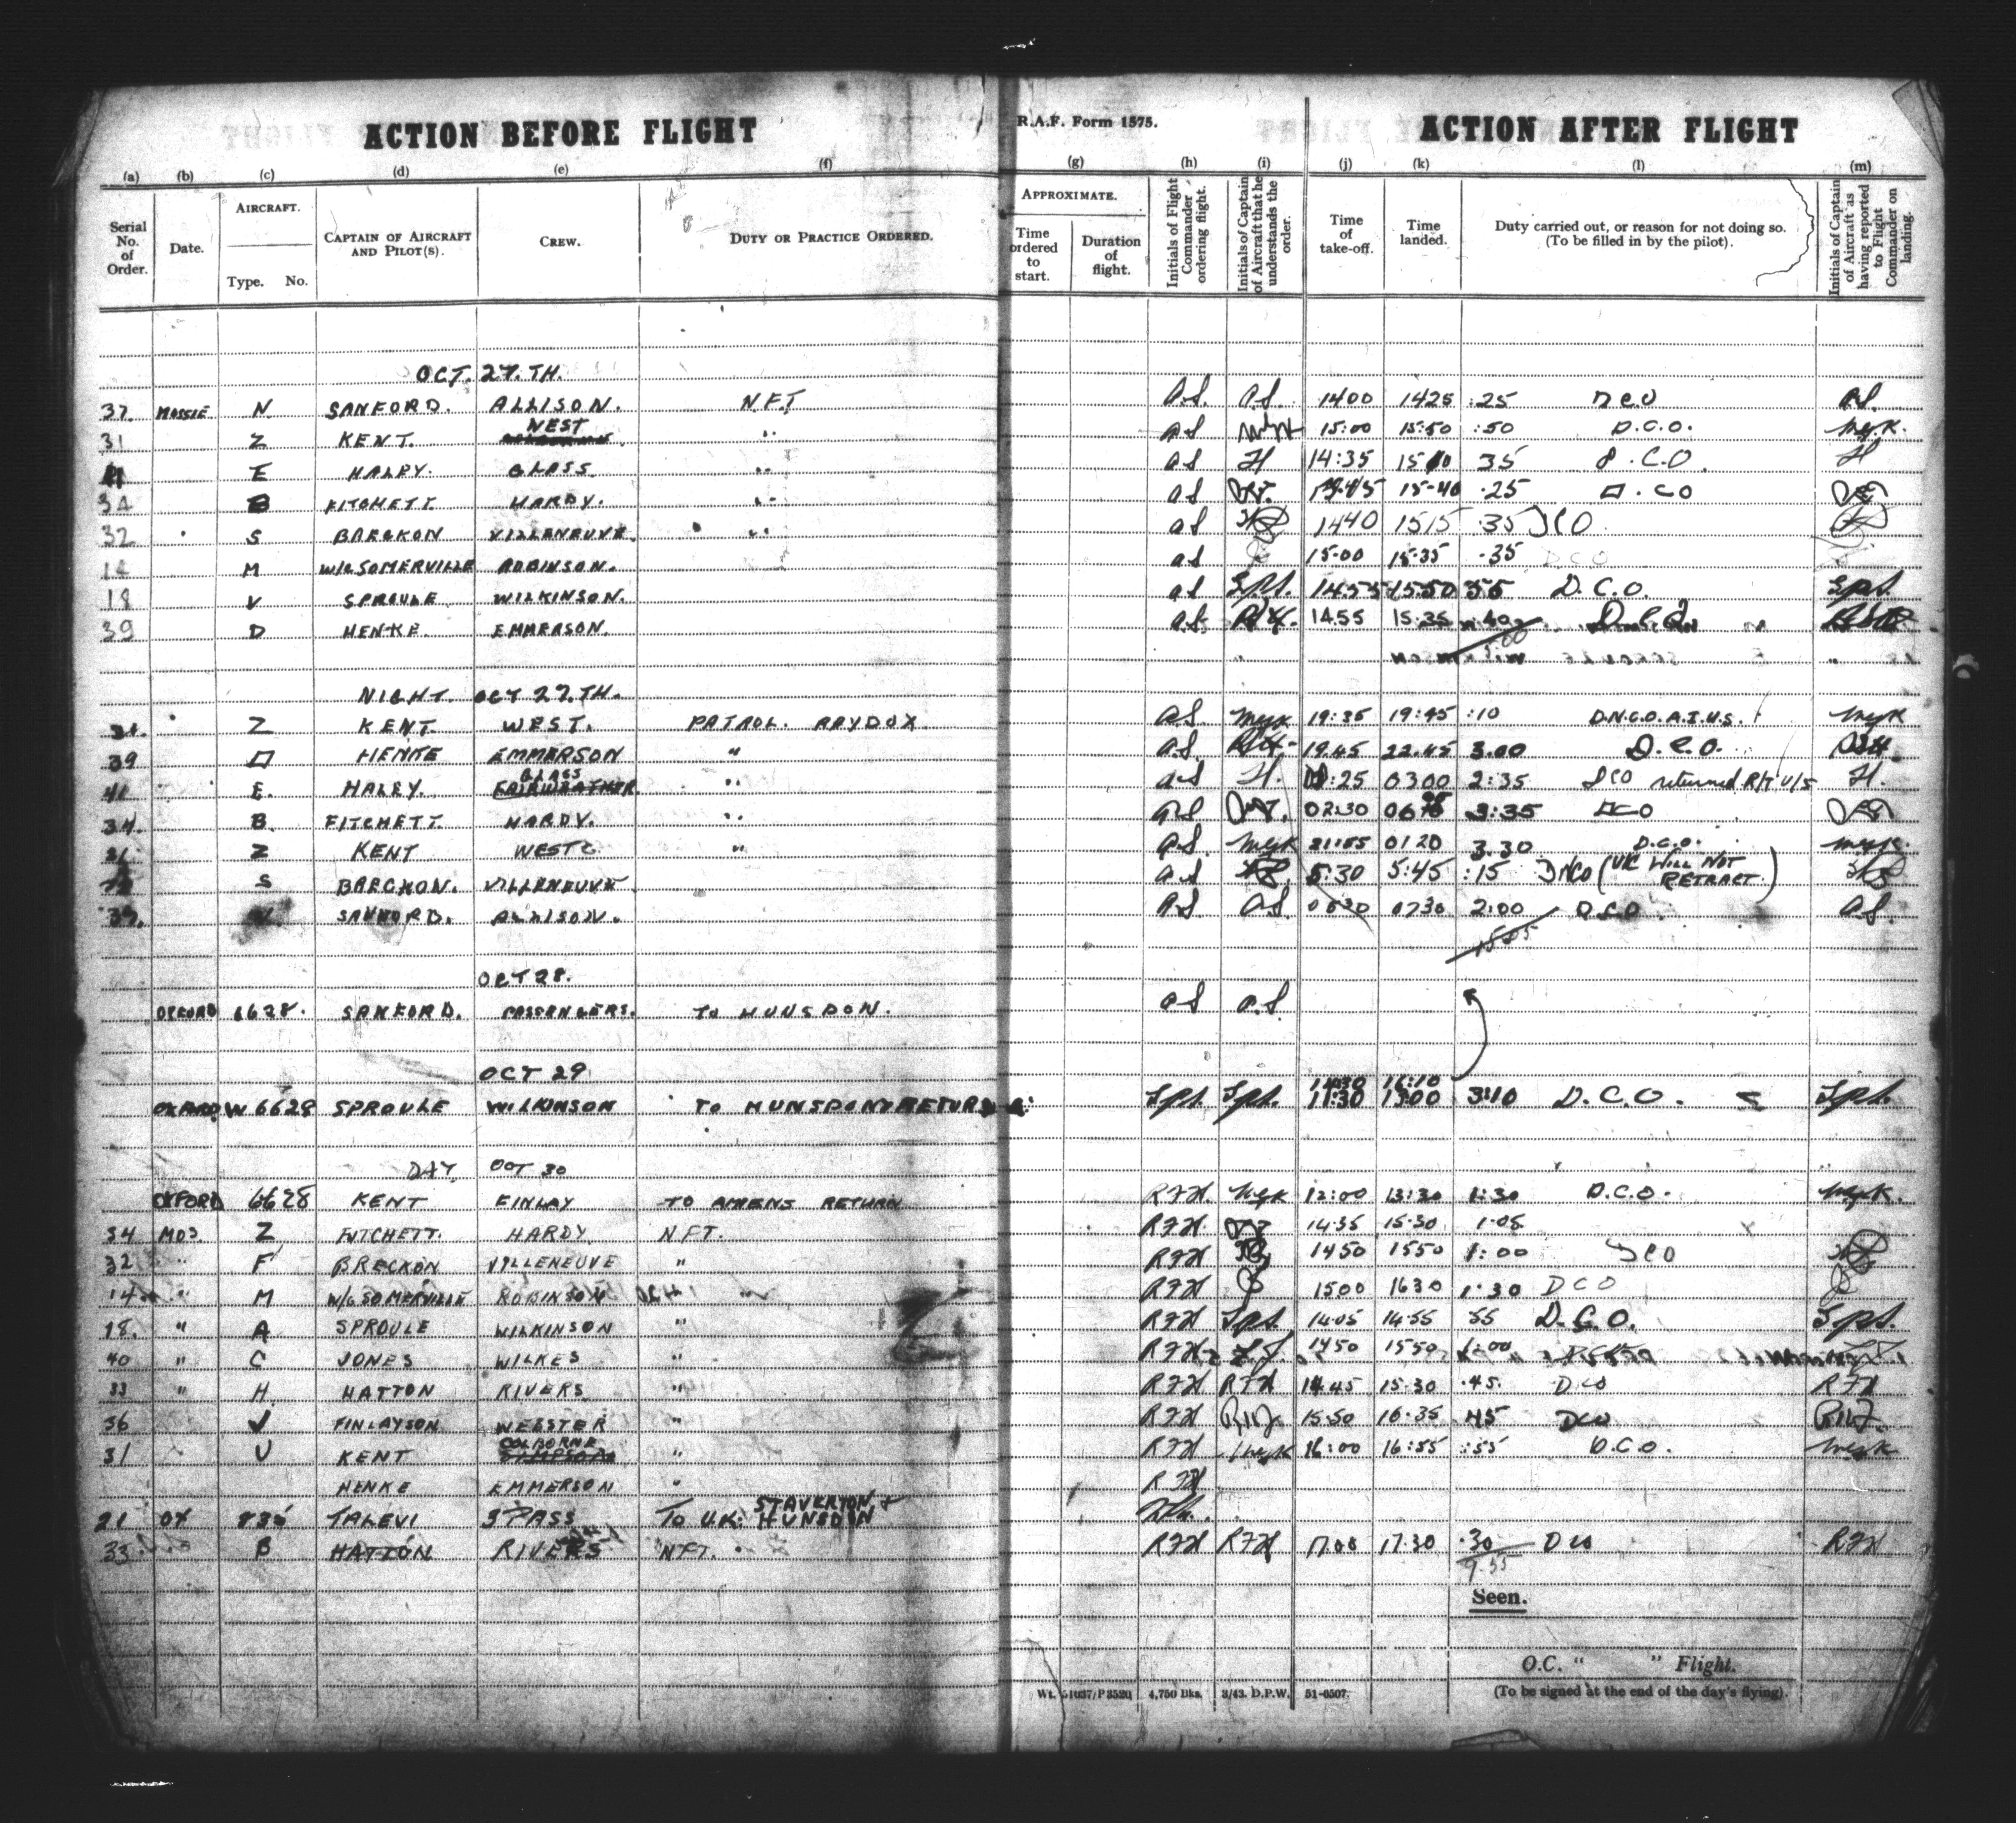 ACTION BEFORE FLIGHT R.A.F. Form 1575. ACTION AFTER FLIGHT
(a) (b) (c) (d) (e) (f) (g) (h) (i) (j) (k) (l) (m)
Serial No. of Order. Date. AIRCRAFT. Type. No. CAPTAIN OF AIRCRAFT AND PILOT(S). CREW. DUTY OR PRACTICE ORDERED. APPROXIMATE. Time ordered to start. Duration of flight. Initials of Flight Commander ordering flight. Initials of Captain of Aircraft that he understands the order. Time of take-off. Time landed. Duty carried out, or reason for not doing so. (To be filled in by the pilot). Initials of Captain of Aircraft as having reported to Flight Commander on landing.
OCT. 27. TH.
37 MOSSIE N SANFORD. ALLISON. N.F.T. a.S. a.S. 1400 1425 :25 DCO a.S.
31 Z KENT. WEST " a.S 15:00 15:50 :50 D.C.O. myk.
E HALEY. GLASS " a.S H 14:35 35 D.C.O H
34 B FITCHETT. HARDY. " a.S 15-40 .25 D.CO
32 S BRECKON VILLENEUVE. " a.S 1440 1515 .35 DCO
14 M W/C SOMERVILLE ROBINSON. a.S 15.00 15.35 .35 DCO
18 V SPROULE WILKINSON. a.S 14.55 15.50 55 D.C.O.
39 D HENKE. EMMERSON. a.S. 14.55 15.35 .40 D.C.O
NIGHT. OCT 27.TH.
31. Z KENT. WEST. PATROL. RAYDOX a.S. myk 19:35 19:45 :10 D.N.C.O. A.I. U.S. myk
39 D HENKE EMMERSON " a.S. 19.45 22.45 3.00 D.C.O.
41 E. HALEY. GLASS " a.S H. :25 0300 2:35 DCO returned R/T U/S H.
34. B. FITCHETT. HARDY. " a.S 02:30 3:35 DCO
Z KENT WEST " a.S. myk 21:55 0120 3.30 D.C.O. myk.
S BRECKON. VILLENEUVE " a.S 5:30 5:45 :15 DNCO (U/C WILL NOT RETRACT)
SANFORD. ALLISON. a.S a.S. 0530 0730 2:00 D.C.O. a.S.
OCT 28.
OXFORD 6628. SANFORD. PASSENGERS. TO HUNSDON. a.S a.S.
OCT 29
14:30 16:10
OXFORD W 6628 SPROULE WILKINSON TO HUNSDON & RETURN 11:30 13:00 3:10 D.C.O.
DAY OCT 30
OXFORD 6628 KENT FINLAY TO AMIENS RETURN RFH. myk 12:00 13:30 1:30 D.C.O. myk.
34 MOS. Z FITCHETT. HARDY. NFT. RFH. 14.35 15.30 1.05
32 " F BRECKON VILLENEUVE " RFH 1450 1550 1:00 DCO
14 " M W/C SOMERVILLE ROBINSON " RFH 1500 1630 1.30 DCO
18. " A SPROULE WILKINSON " RFH 14.05 14.55 55 D.C.O.
40 " C JONES WILKES " RFH 1450 1550 1:00
33 " H. HATTON RIVERS. " RFH RFH 14.45 15.30 .45. DCO RFH
36 J FINLAYSON WEBSTER " RFH 15.50 16.35 45 DCO
31 U KENT COLBORNE " RFH myk 16:00 16:55 :55 D.C.O. myk
HENKE EMMERSON " RFH
21 OX TALEVI 3 PASS TO U.K: STAVERTON & HUNSDON
33 B HATTON RIVERS NFT. RFH RFH 17.00 17.30 .30 DCO RFH
9.55
Seen.
O.C. " " Flight.
Wt. 51037/P3520 4,750 Bks. 3/43. D.P.W. 51-6507. (To be signed at the end of the day's flying).